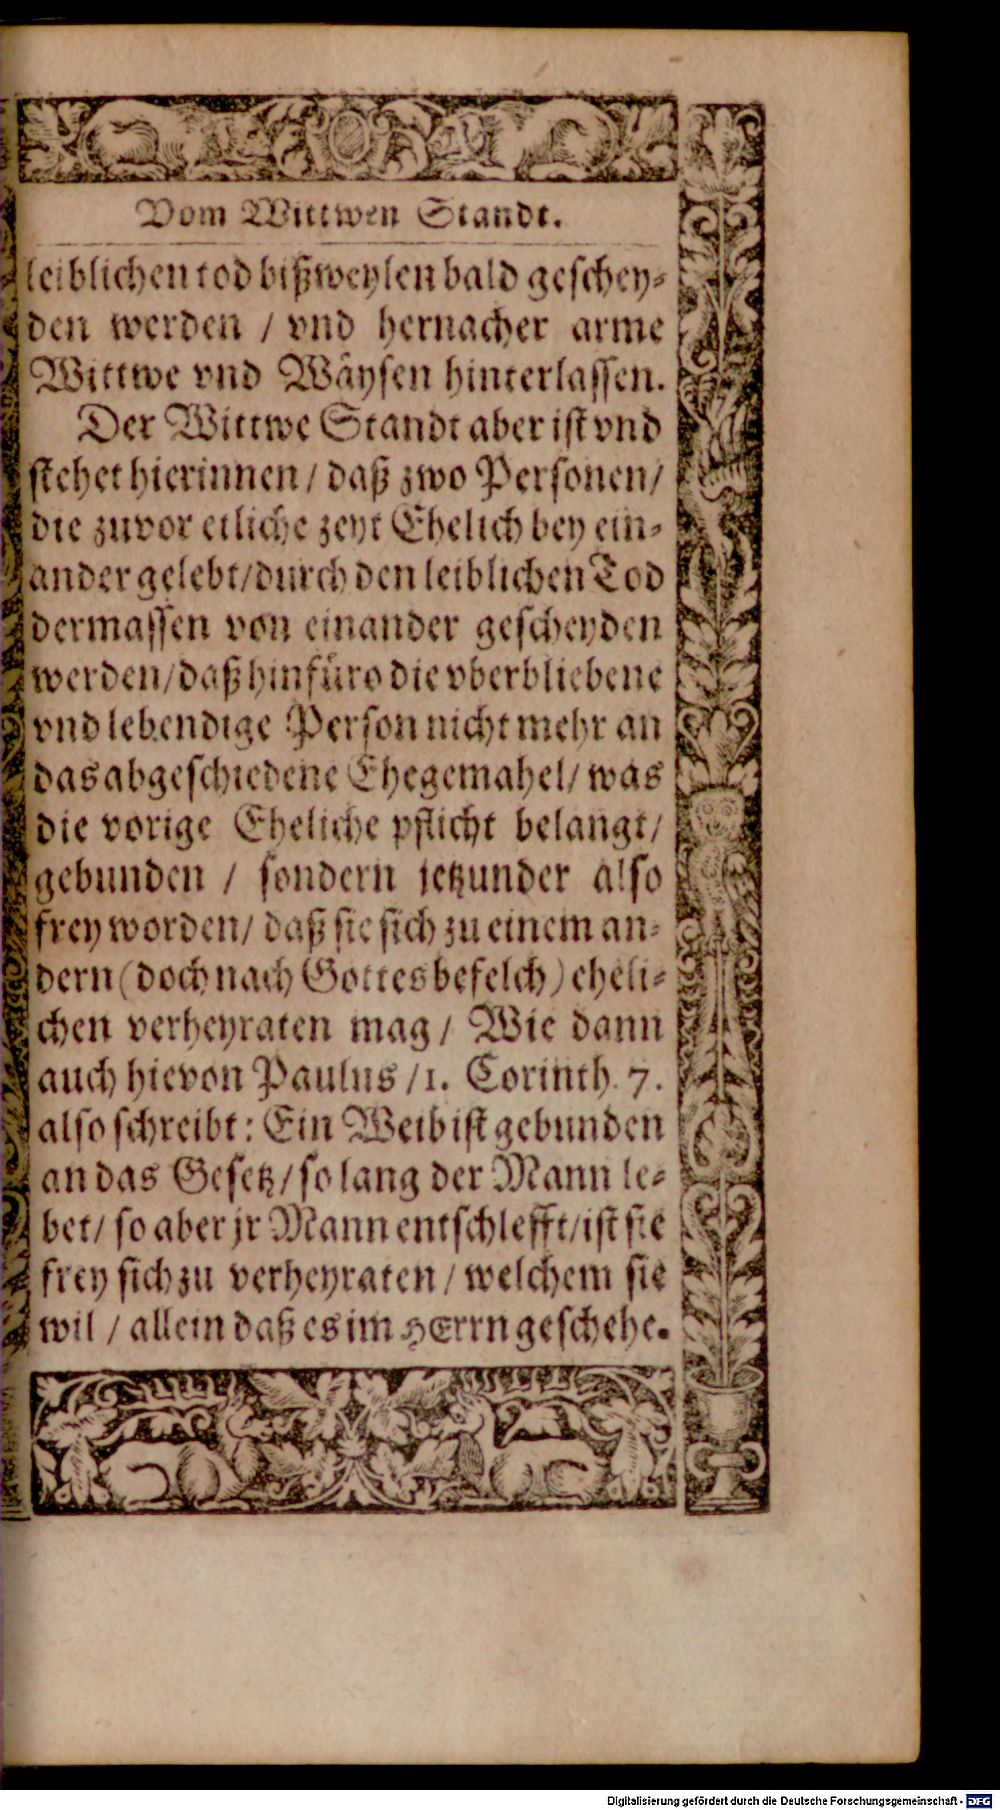 Vom Wittwen Standt.
leiblichen tod bißweylen bald geschey-
den werden / vnd hernacher arme
Wittwe vnd Wäysen hinterlassen.
Der Wittwe Standt aber ist vnd
stehet hierinnen / daß zwo Personen /
die zuvor etliche zeyt Ehelich bey ein-
ander gelebt / durch den leiblichen Tod
dermassen von einander gescheyden
werden / daß hinfüro die vberbliebene
vnd lebendige Person nicht mehr an
das abgeschiedene Ehegemahel / was
die vorige Eheliche pflicht belangt /
gebunden / sondern jetzunder also
frey worden / daß sie sich zu einem an-
dern (doch nach Gottes befelch) eheli-
chen verheyraten mag / Wie dann
auch hievon Paulus / 1. Corinth. 7.
also schreibt: Ein Weib ist gebunden
an das Gesetz / so lang der Mann le-
bet / so aber jr Mann entschlefft / ist sie
frey sich zu verheyraten / welchem sie
wil / allein daß es im HErrn geschehe.
Digitalisierung gefördert durch die Deutsche Forschungsgemeinschaft - DFG